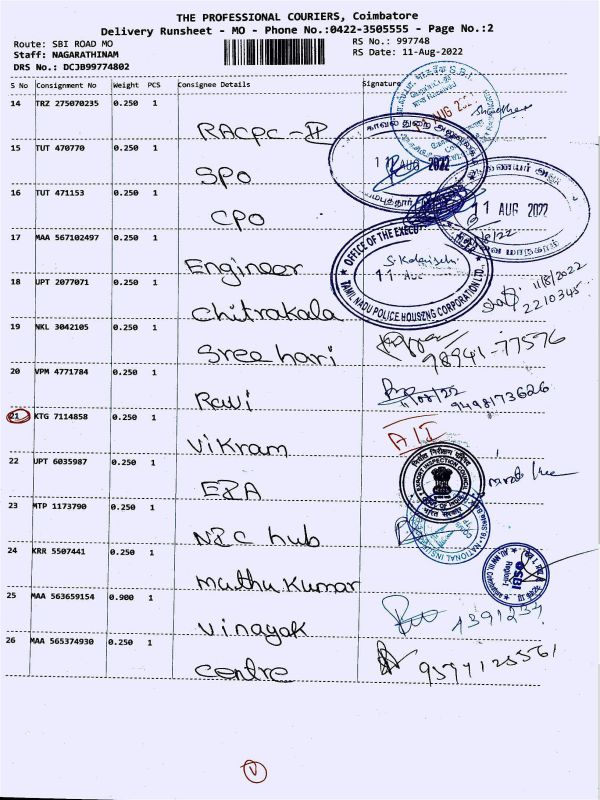 THE PROFESSIONAL COURIERS, Coimbatore
Delivery Runsheet - MO - Phone No.:0422-3505555 - Page No.:2
Route: SBI ROAD MO
RS No.: 997748
Staff: NAGARATHINAM
RS Date: 11-Aug-2022
DRS No.: DCJB99774802
S No Consignment No Weight PCS Consignee Details Signature
14 TRZ 275070235 0.250 1
RACPC - II
15 TUT 470770 0.250 1
SPO
11 AUG 2022
16 TUT 471153 0.250 1
CPO
11 AUG 2022
17 MAA 567102497 0.250 1
OFFICE OF THE
TAMIL NADU POLICE HOUSING CORPORATION LTD.
Engineer
11/8/2022
18 UPT 2077071 0.250 1
2210345
Chitrakala
19 NKL 3042105 0.250 1
Sree hari
98941-77576
20 VPM 4771784 0.250 1
11/08/22
9498173626
Ravi
21 KTG 7114858 0.250 1
A/I
Vikram
निर्यात निरीक्षण परिषद
EXPORT INSPECTION COUNCIL
भारत सरकार
22 UPT 6035987 0.250 1
23 MTP 1173790 0.250 1
NIC hub
24 KRR 5507441 0.250 1
Muthu Kumar
OSBI
25 MAA 563659154 0.900 1
Vinayak
26 MAA 565374930 0.250 1
9597125561
Centre